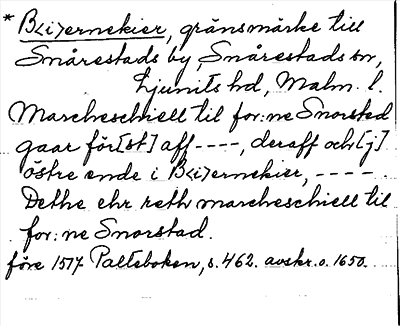 * B<i>ernekier, gränsmärke till
Snårestads by Snårestads sn,
Ljunits hd, Malm. l.
Marcheschiell til for:ne Snorsted
gaar för[st] aff ----, deraff och [j]
östre ende i B<i>ernekier, ----
Dethe ehr reth marcheschiell til
for:ne Snorstad.
före 1517 Palteboken, s. 462. avskr. o. 1650.